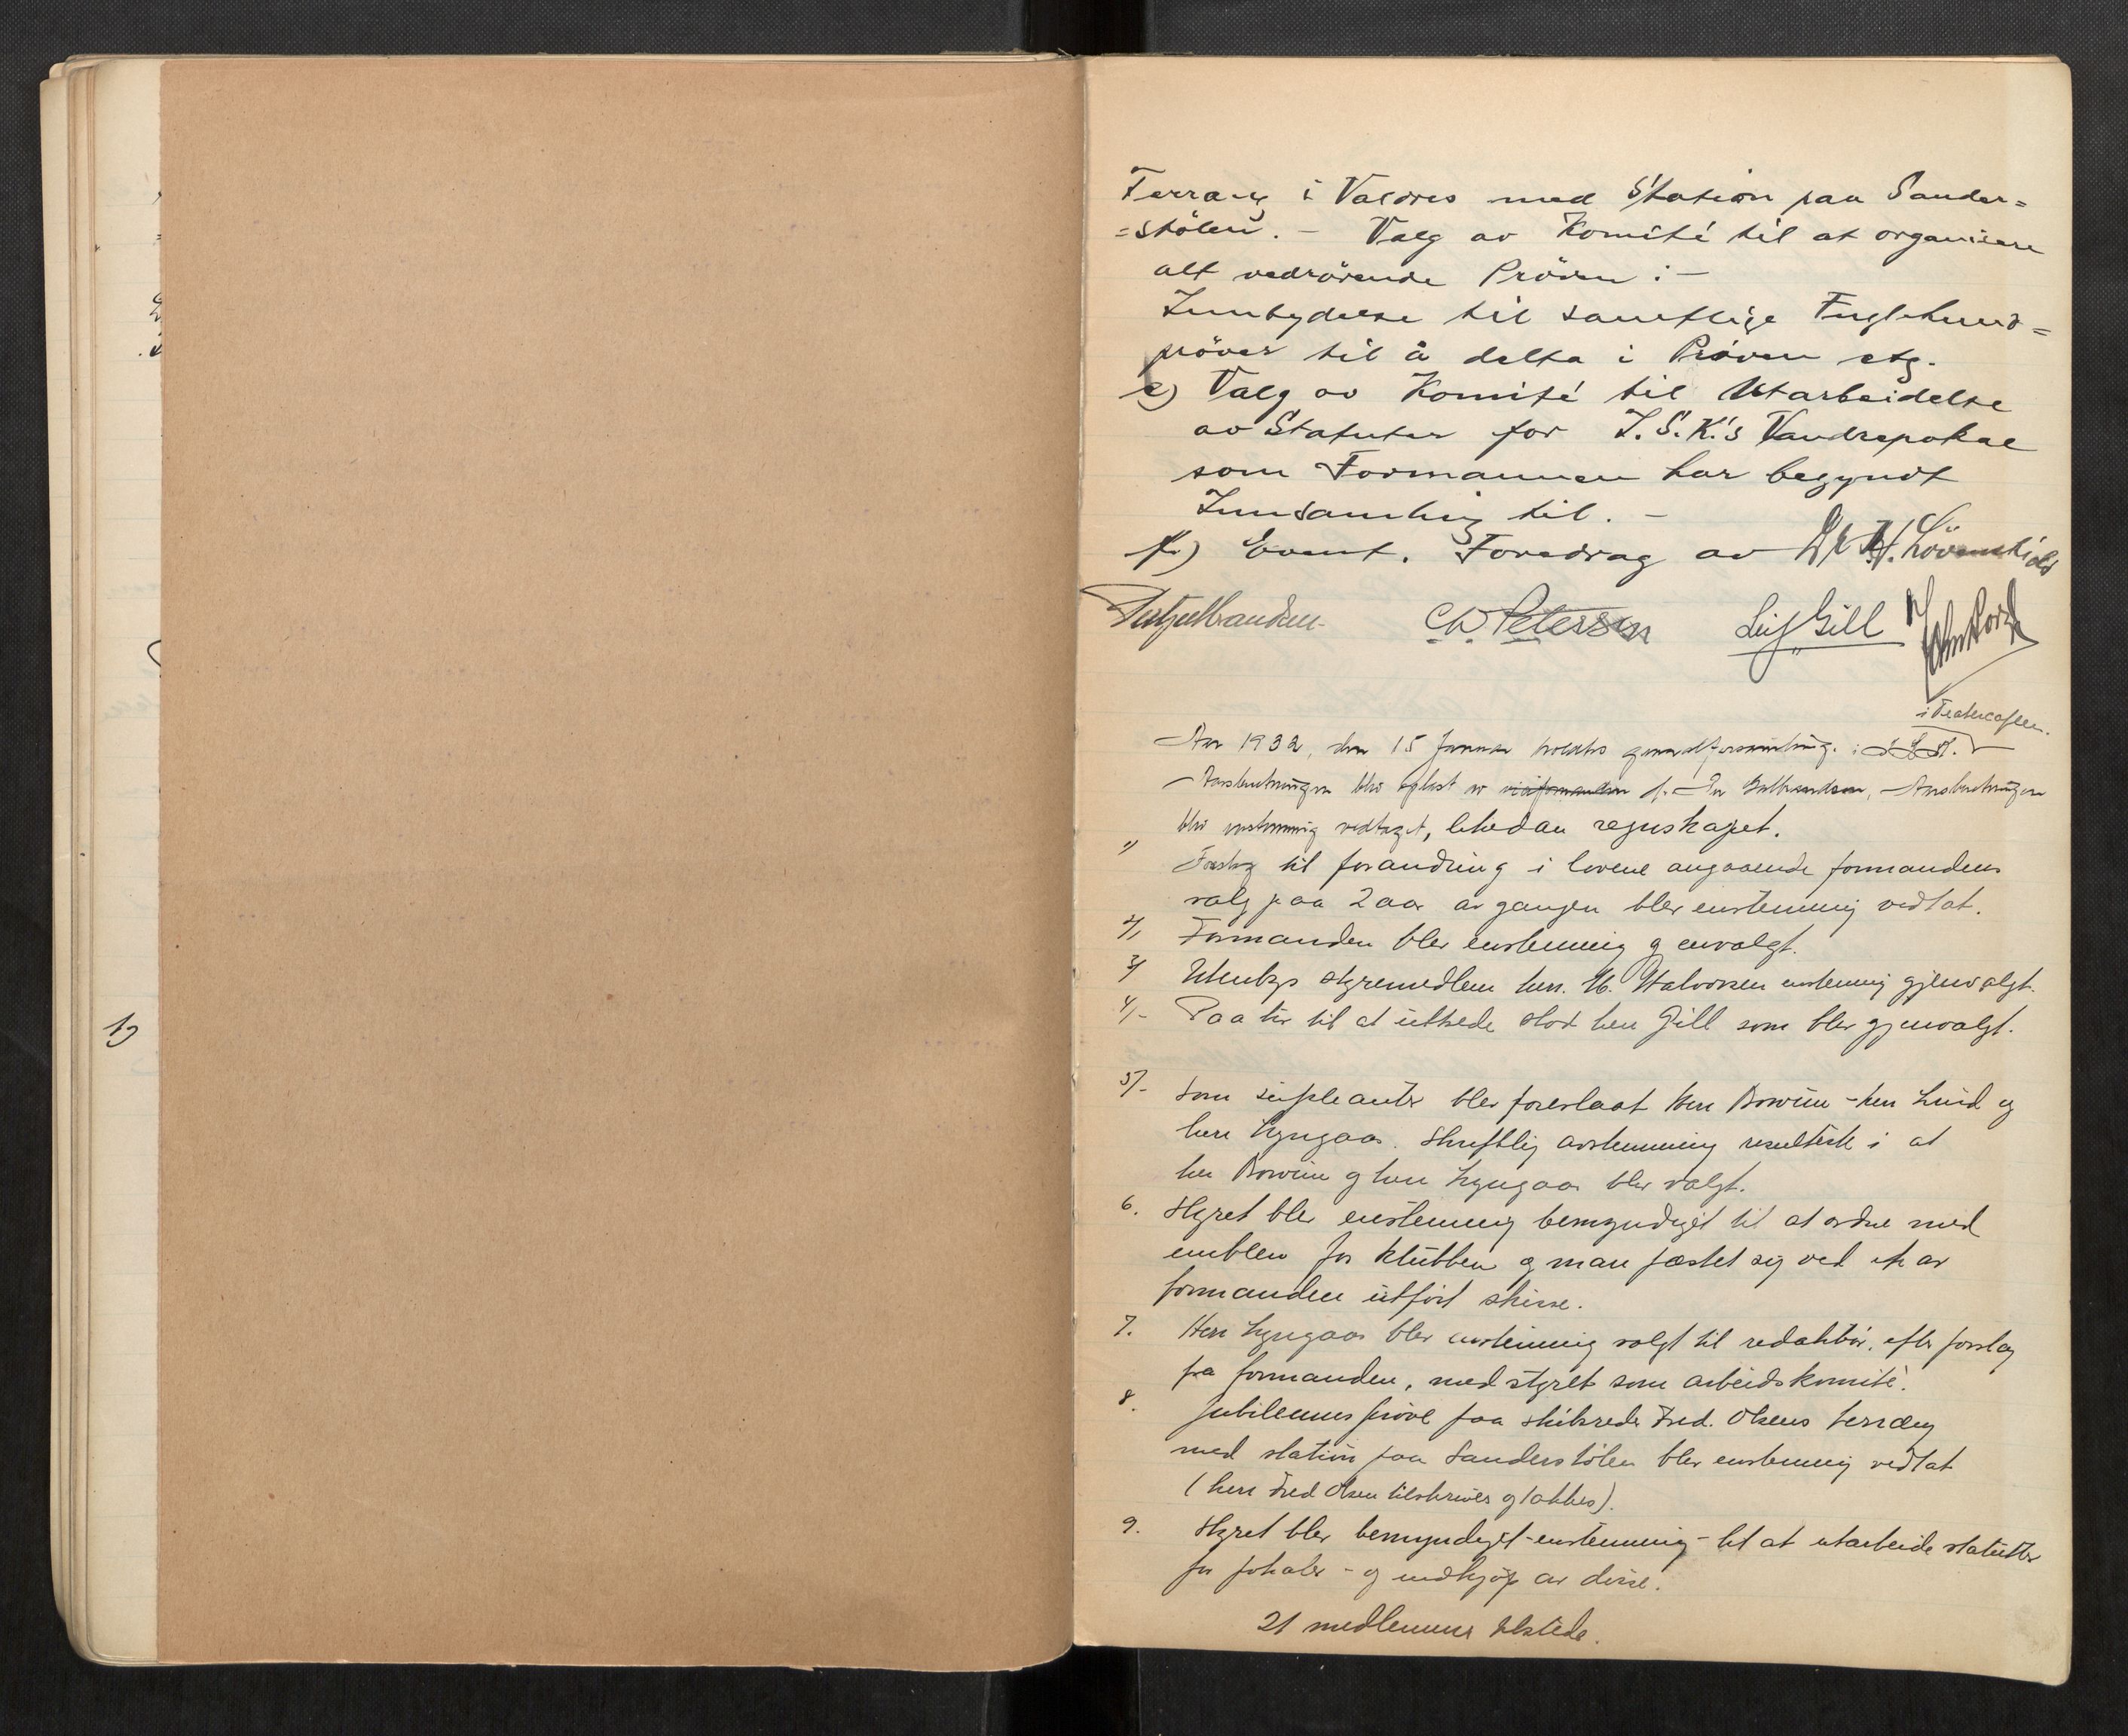 Terræng i Valdres med Station paa Sander=
=stölen. – Valg av Komité til at organisere
alt vedrörende Pröven : –
Innbydelse til samtlige Fuglehund=
pröver til å delta i Pröven etg.
e) Valg av Komité til Utarbeidelse
av Statuter for I.S.K.'s Vandrepokal
som Formannen har begyndt
Innsamling til. –
f.) Event. Foredrag av Dr H. Lövenskiold
Ch. Petersen Leif Gill
i Teatercafeen.
Aar 1932, den 15 Januar holdtes generalforsamling. i
Aarsberetningen blev oplest av viseformanden hr. Gulbrandsen, Aarsberetningen
blev enstemmig vedtaget, likedan regnskapet.
1) Forslag til forandring i lovene angaaende formandens
valg paa 2 aar av gangen blev enstemmig vedtat.
2) Formanden blev enstemmig genvalgt.
3) Utenbys styremedlem herr. M. Halvorsen enstemmig gjenvalgt.
4) – Paa tur til at uttrede stod herr Gill som blev gjenvalgt.
5) – Som supleanter blev foreslaat Herr – herr Lind og
herr Lyngaas. Skriftlig avstemming resulterte i at
herr og herr Lyngaas blev valgt.
6. Styret blev enstemmig bemyndiget til at ordne med
emblem for klubben og man fæstet sig ved et av
formanden utført skisse.
7. Herr Lyngaas blev enstemmig valgt til redaktør, efter forslag
fra formanden, med styret som arbeidskomité.
8. Jubileums prøve paa skibsreder Fred. Olsens terræng
med station paa Sanderstölen blev enstemmig vedtat
(herr Fred Olsen tilskrives og takkes).
9. Styret blev bemyndiget – enstemmig – til at utarbeide statutter
for pokaler – og indkjøp av disse.
21 medlemmer tilstede.
19